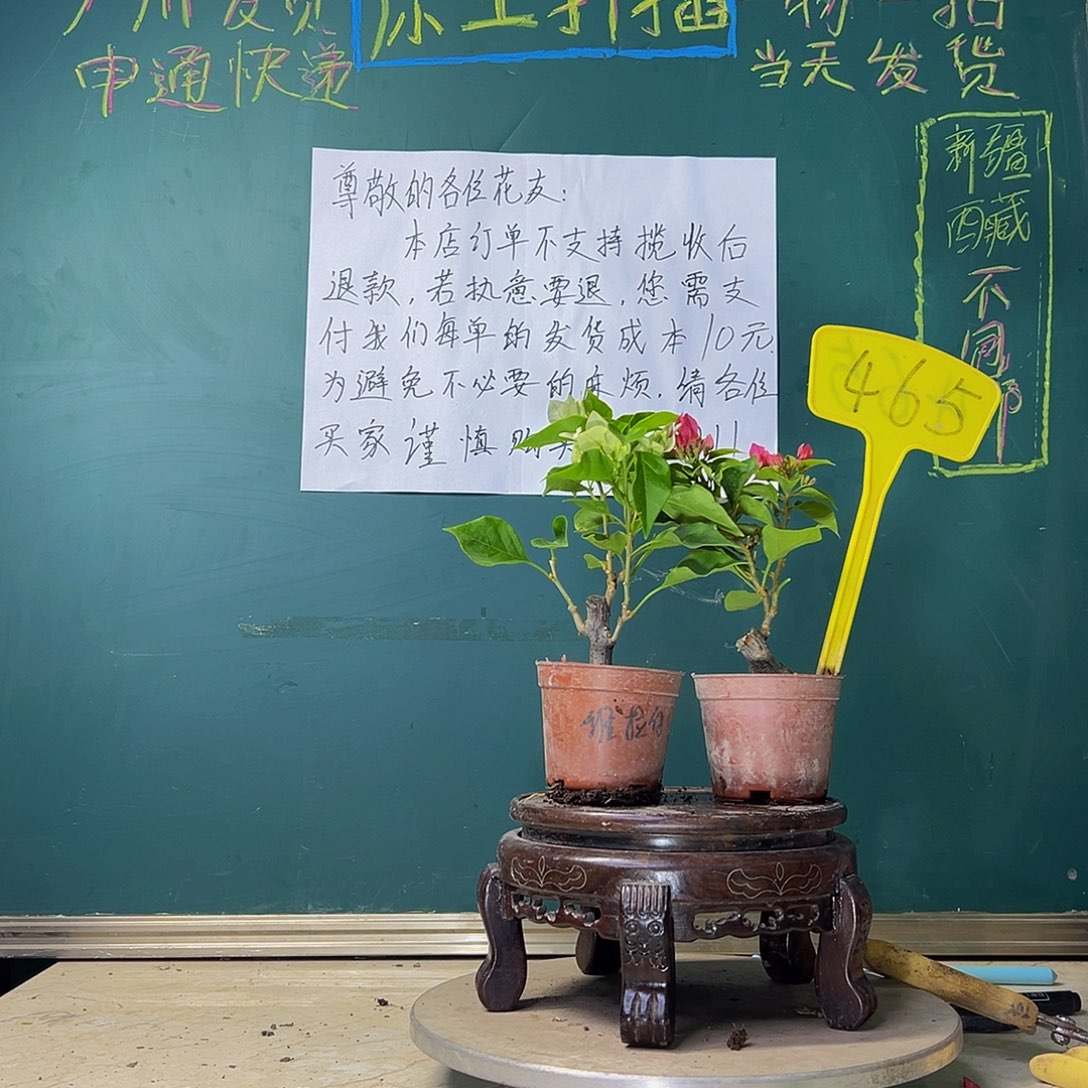 申通快递
当天发货
尊敬的各位花友:
本店订单不支持揽收后
退款,若执意要退,您需支
付我们每单的发货成本10元.
为避免不必要的麻烦.请各位
买家谨慎购买!!
新疆
西藏
不
同
465
维拉白